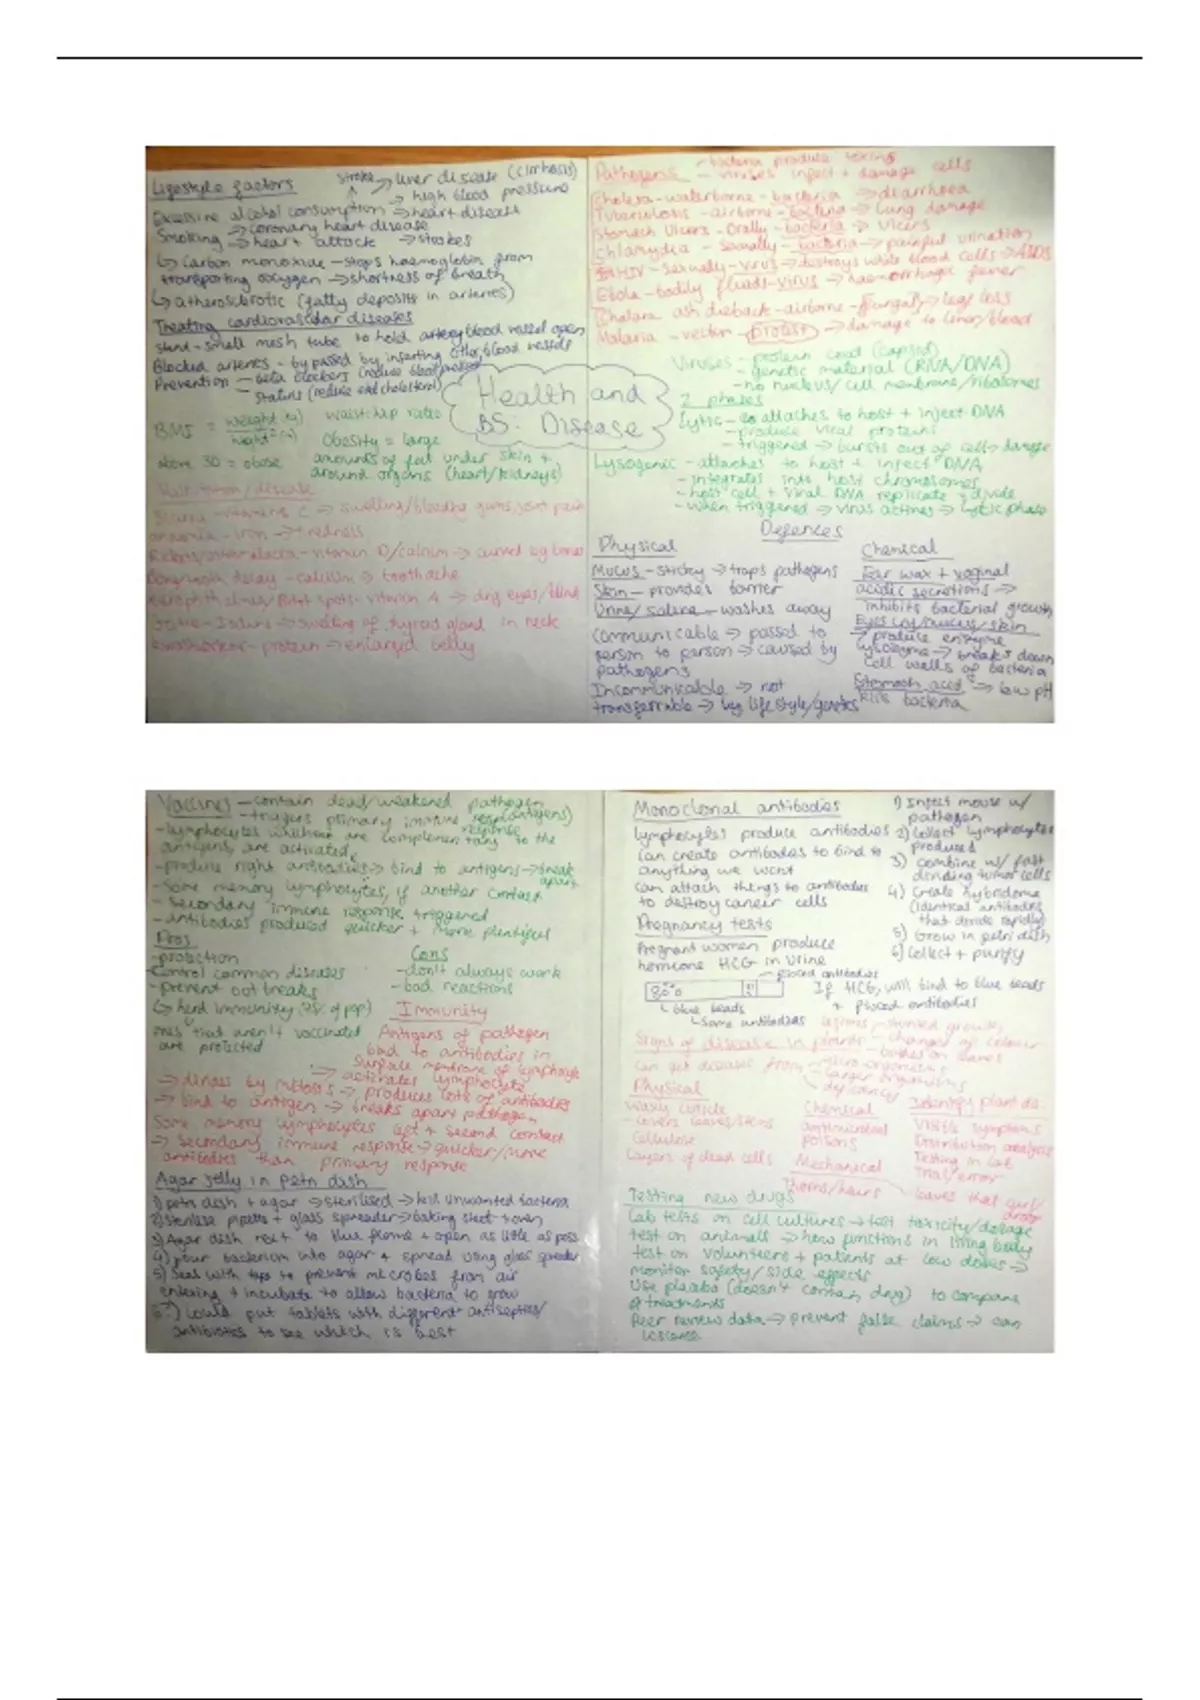 Lifestyle factors
stroke → liver disease (cirrhosis)
→ high blood pressure
Excessive alcohol consumption → heart disease
→ coronary heart disease
Smoking → heart attack → strokes
↳ carbon monoxide - stops haemoglobin from
transporting oxygen → shortness of breath
↳ atherosclerotic (fatty deposits in arteries)
Treating cardiovascular diseases
stend - small mesh tube to hold artery blood vessel open
Blocked arteries - bypassed by inserting other blood vessels
Prevention - beta blockers (reduce blood pressure)
- statins (reduce cholesterol)
BMI = weight (kg) / height² (m)
waist:hip ratio
above 30 = obese
Obesity = large
amounts of fat under skin +
around organs (heart/kidneys)
Malnutrition/disease
Scurvy - vitamins C → swelling/bleeding gums, joint pain
anaemia - iron → tiredness
Rickets/osteomalacia - vitamin D/calcium → curved leg bones
tooth decay - calcium → toothache
spots - vitamin A → dry eyes/blind
Goitre - Iodine → swelling of thyroid gland in neck
- protein → enlarged belly
Health and
B5: Disease
Pathogens - bacteria produce toxins
- viruses inject + damage cells
Cholera - waterborne - bacteria → diarrhoea
Tuberculosis - airborne - bacteria → lung damage
Stomach Ulcers - Orally - bacteria → ulcers
Chlamydia - Sexually - bacteria → painful urination
HIV - sexually - virus → destroys white blood cells → AIDS
Ebola - bodily fluids - virus → haemorrhagic fever
Chalara ash dieback - airborne - fungal → leaf loss
Malaria - vector - protist → damage to liver/blood
Viruses - protein coat (capsid)
- genetic material (RNA/DNA)
- no nucleus/cell membrane/ribosomes
2 phases
Lytic - attaches to host + inject DNA
- produce viral proteins
- triggered → bursts out of cell → damage
Lysogenic - attaches to host + inject DNA
- integrates into host chromosomes
- host cell + viral DNA replicate + divide
- when triggered → virus actives → lytic phase
Defences
Physical
Mucus - sticky → traps pathogens
Skin - provides barrier
Urine/saliva - washes away
communicable → passed to
person to person → caused by
pathogens
Incommunicable → not
transferrable → by lifestyle/genetics
Chemical
Ear wax + vaginal
acidic secretions →
inhibits bacterial growth
Eyes cry/mucus/skin
→ produce enzyme
lysozyme → breaks down
cell walls of bacteria
Stomach acid → low pH
kills bacteria
Vaccines - contain dead/weakened pathogen
(antigens)
- triggers primary immune response
- lymphocytes which are complementary to the
antigens, are activated
- produce right antibodies → bind to antigens → break
apart
- Some memory lymphocytes, if another contact
- Secondary immune response triggered
- antibodies produced quicker + more plentiful
Pros
- protection
- control common diseases
- prevent outbreaks
↳ herd immunity (75% of pop)
ones that aren't vaccinated
are protected
Cons
- don't always work
- bad reactions
Immunity
Antigens of pathogen
bind to antibodies in
surface membrane of lymphocyte
→ activates lymphocyte
→ divides by mitosis → produces lots of antibodies
→ bind to antigen → breaks apart pathogen
Some memory lymphocytes left + second contact
→ Secondary immune response → quicker/more
antibodies than primary response
Agar Jelly in petri dish
1) petri dish + agar → sterilised → kill unwanted bacteria
2) Sterilise pipette + glass spreader → baking sheet + oven
3) Agar dish next to blue flame + open as little as poss
4) pour bacterium into agar + spread using glass spreader
5) Seal with tape to prevent microbes from air
entering + incubate to allow bacteria to grow
6?) Could put tablets with different antiseptics/
antibiotics to see which is best
Monoclonal antibodies
lymphocytes produce antibodies
Can create antibodies to bind to
anything we want
can attach things to antibodies
to destroy cancer cells
1) Infect mouse w/
pathogen
2) Collect lymphocytes
produced
3) combine w/ fast
dividing tumor cells
4) Create hybridoma
(identical antibodies
that divide rapidly)
5) Grow in petri dish
6) Collect + purify
Pregnancy tests
Pregnant women produce
hormone HCG in urine
placed antibodies
If HCG, will bind to blue beads
+ placed antibodies
blue beads
Some antibodies
Signs of disease in plants
- stunted growth
- change of colour
on leaves
Can get diseases from - micro-organisms
larger organisms
Physical
Waxy cuticle
- covers leaves/stems
Cellulose
Layers of dead cells
Chemical
antimicrobial
poisons
Mechanical
Thorns/hairs
leaves that curl/
droop
Identify plant dis
Visible symptoms
Distribution analysis
Testing in lab
Trial/error
Testing new drugs
Lab tests on cell cultures → test toxicity/dosage
test on animals → how functions in living body
test on volunteers + patients at low doses →
monitor safety/side effects
Use placebo (doesn't contain drug) to compare
treatments
Peer review data → prevent false claims → can